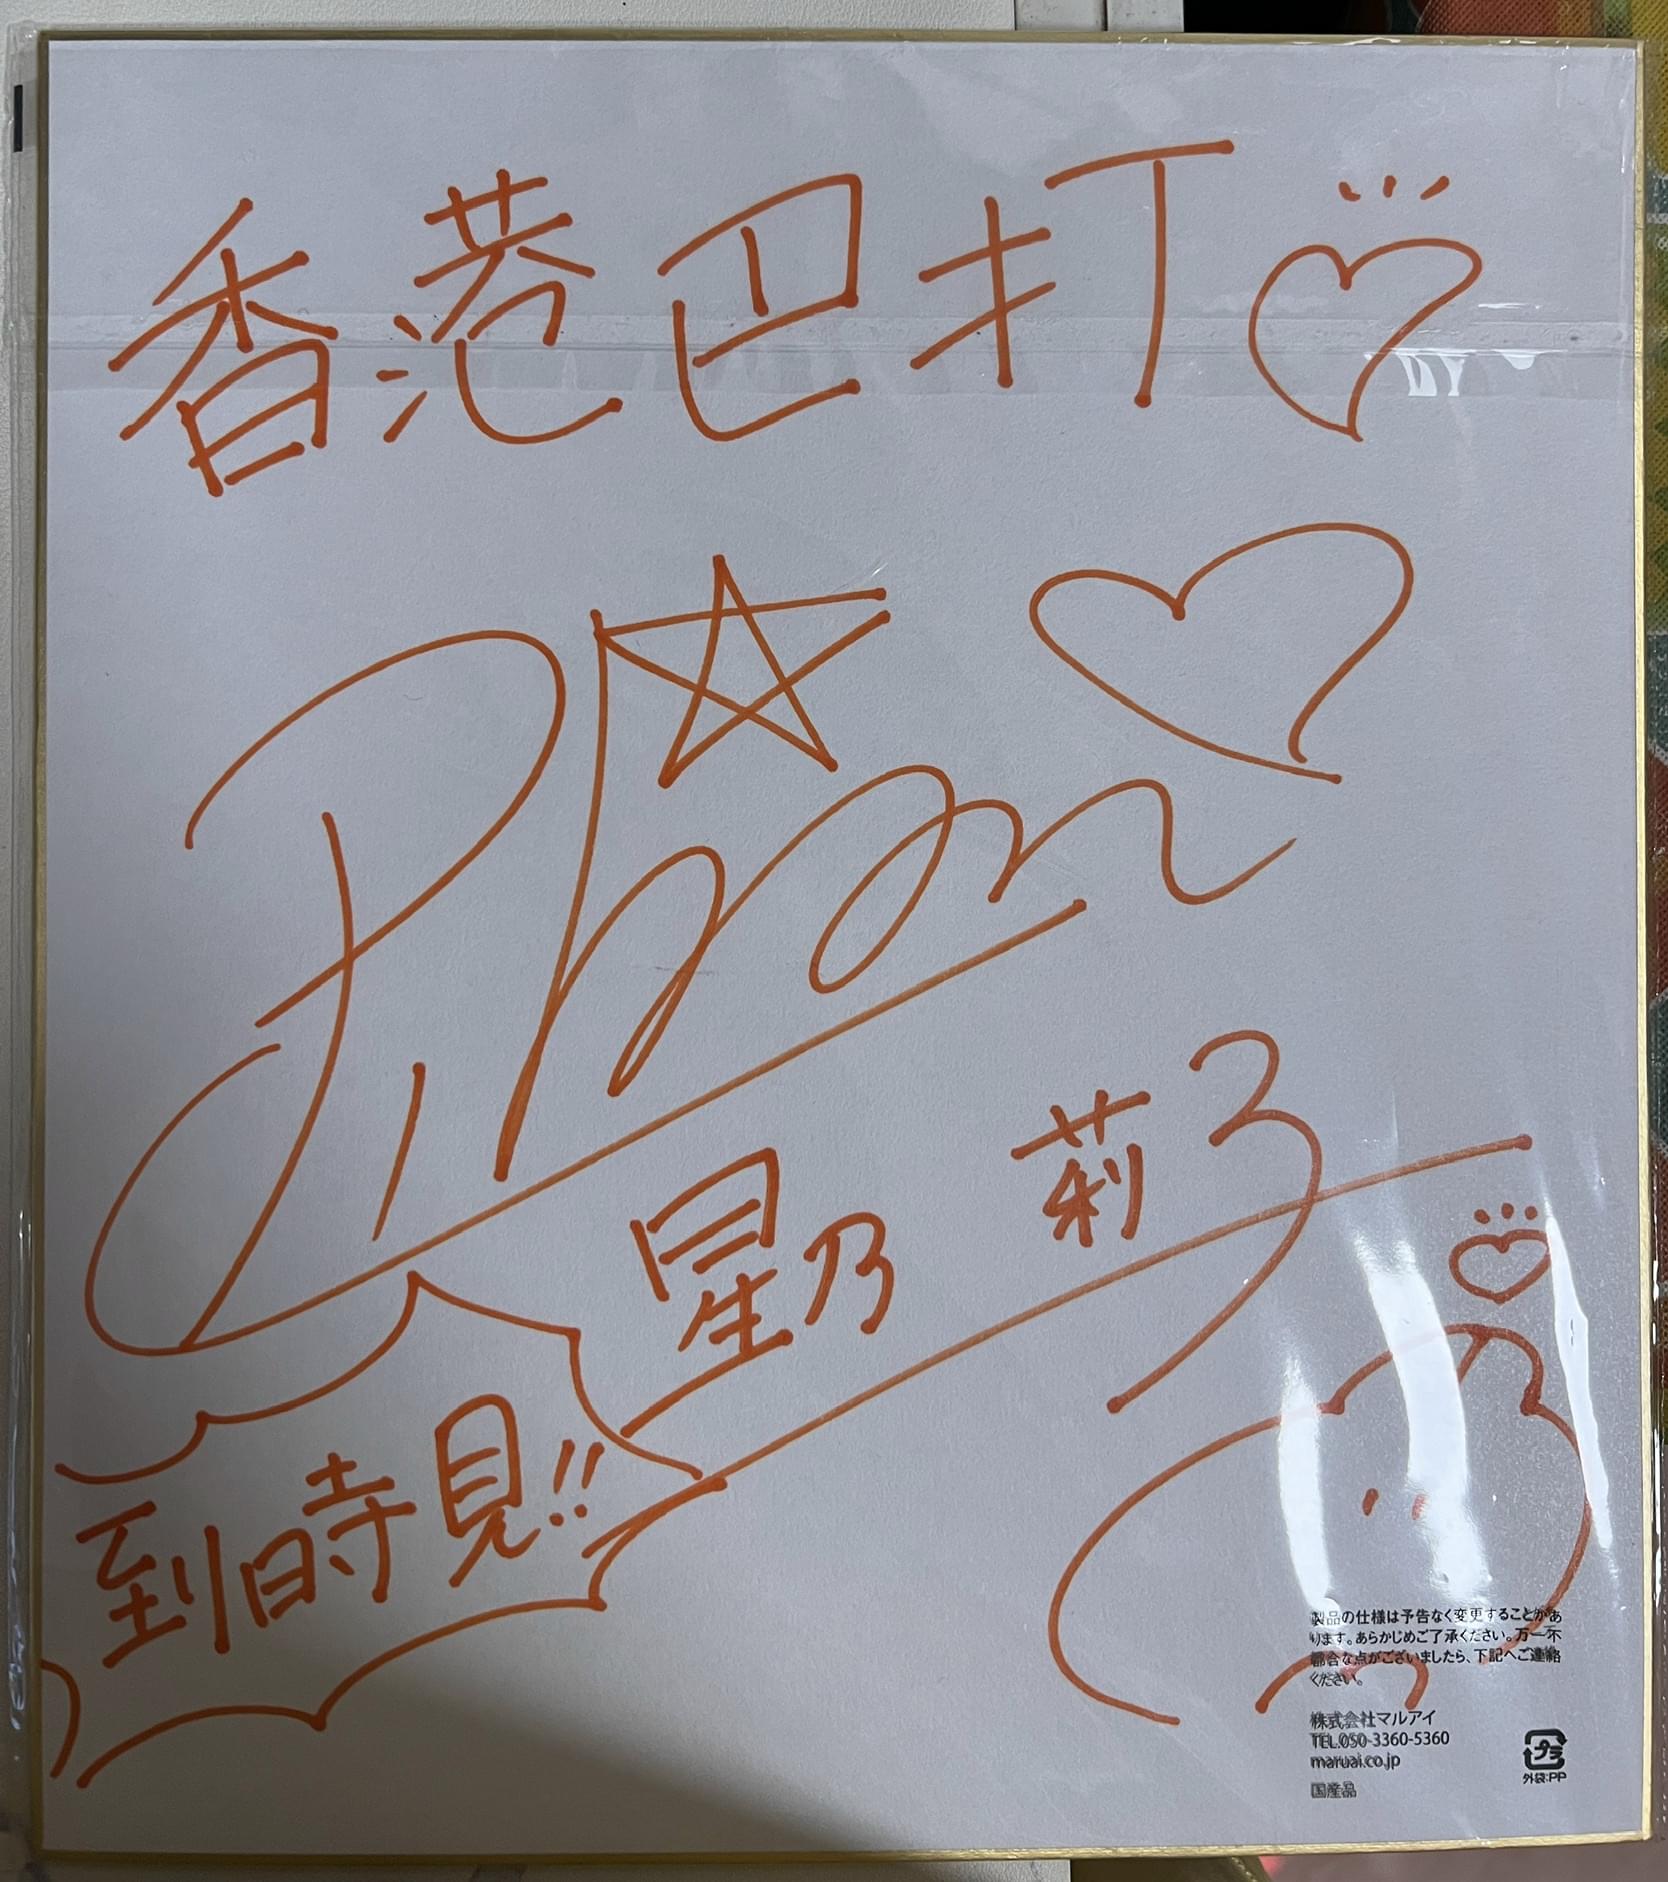 香港巴打
星乃 莉子
到時見!!
製品の仕様は予告なく変更することがあ
ります。あらかじめご了承ください。万一不
都合な点がございましたら、下記へご連絡
ください。
株式会社マルアイ
TEL.050-3360-5360
maruai.co.jp
国産品
プラ
外袋:PP